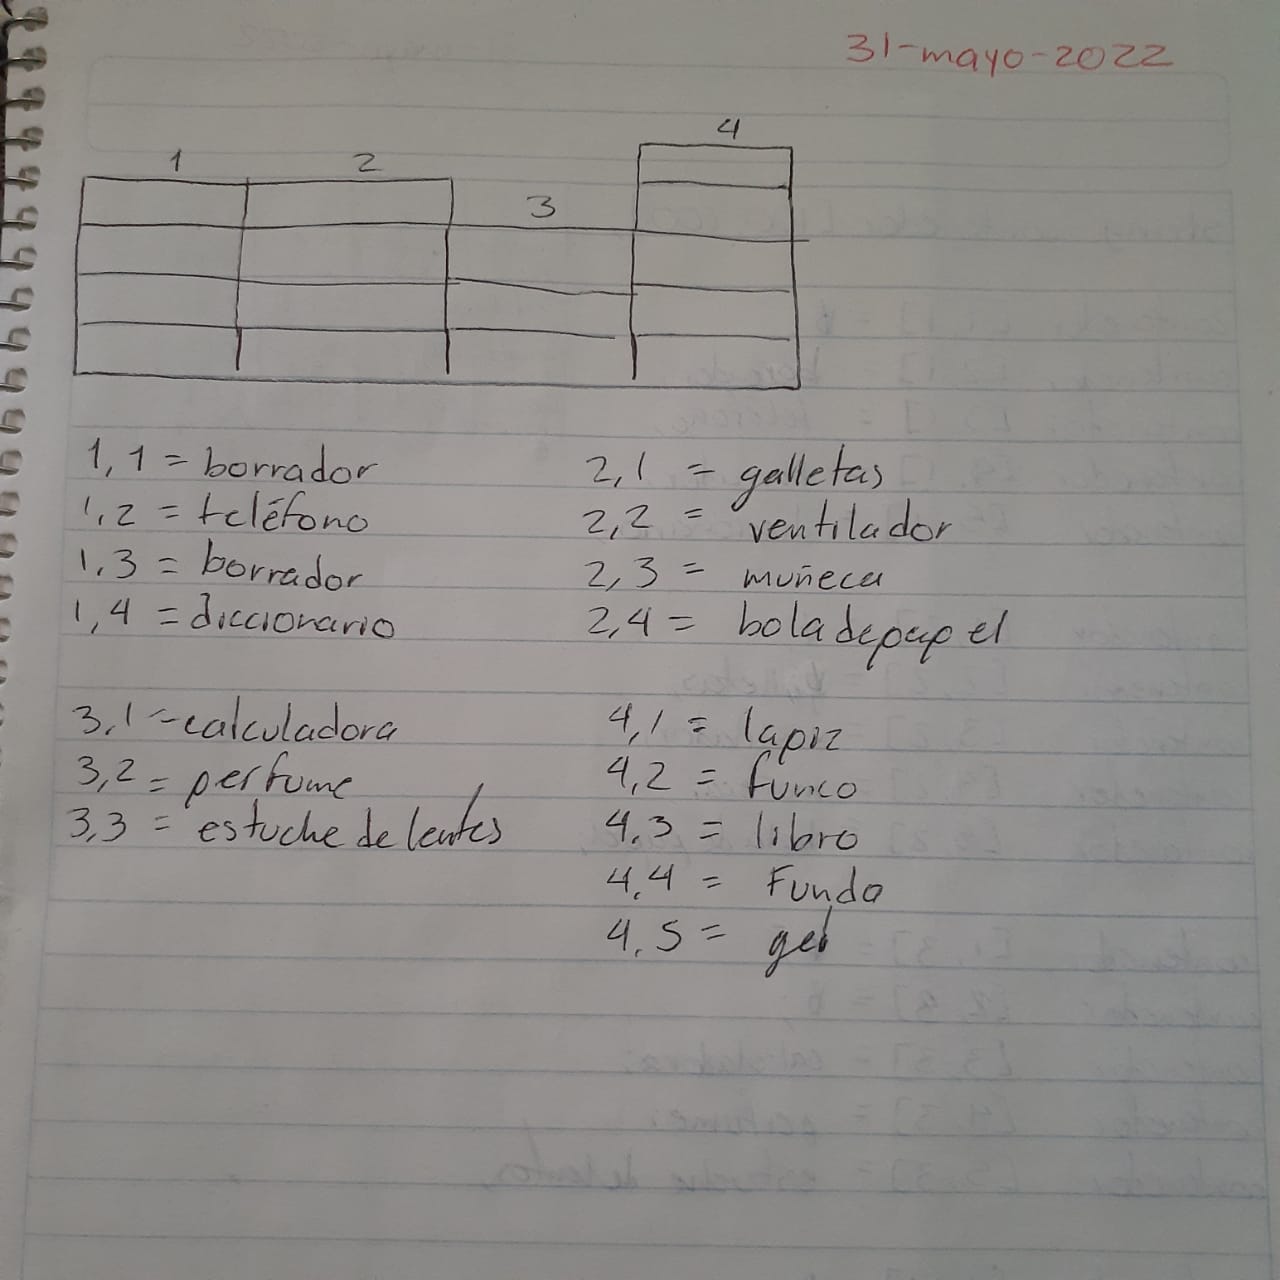 31-mayo-2022
1
2
3
4
1,1 = borrador
1,2 = teléfono
1,3 = borrador
1,4 = diccionario
2,1 = galletas
2,2 = ventilador
2,3 = muñeca
2,4 = bola de papel
3,1 = calculadora
3,2 = perfume
3,3 = estuche de lentes
4,1 = lapiz
4,2 = funco
4,3 = libro
4,4 = Funda
4,5 = gel